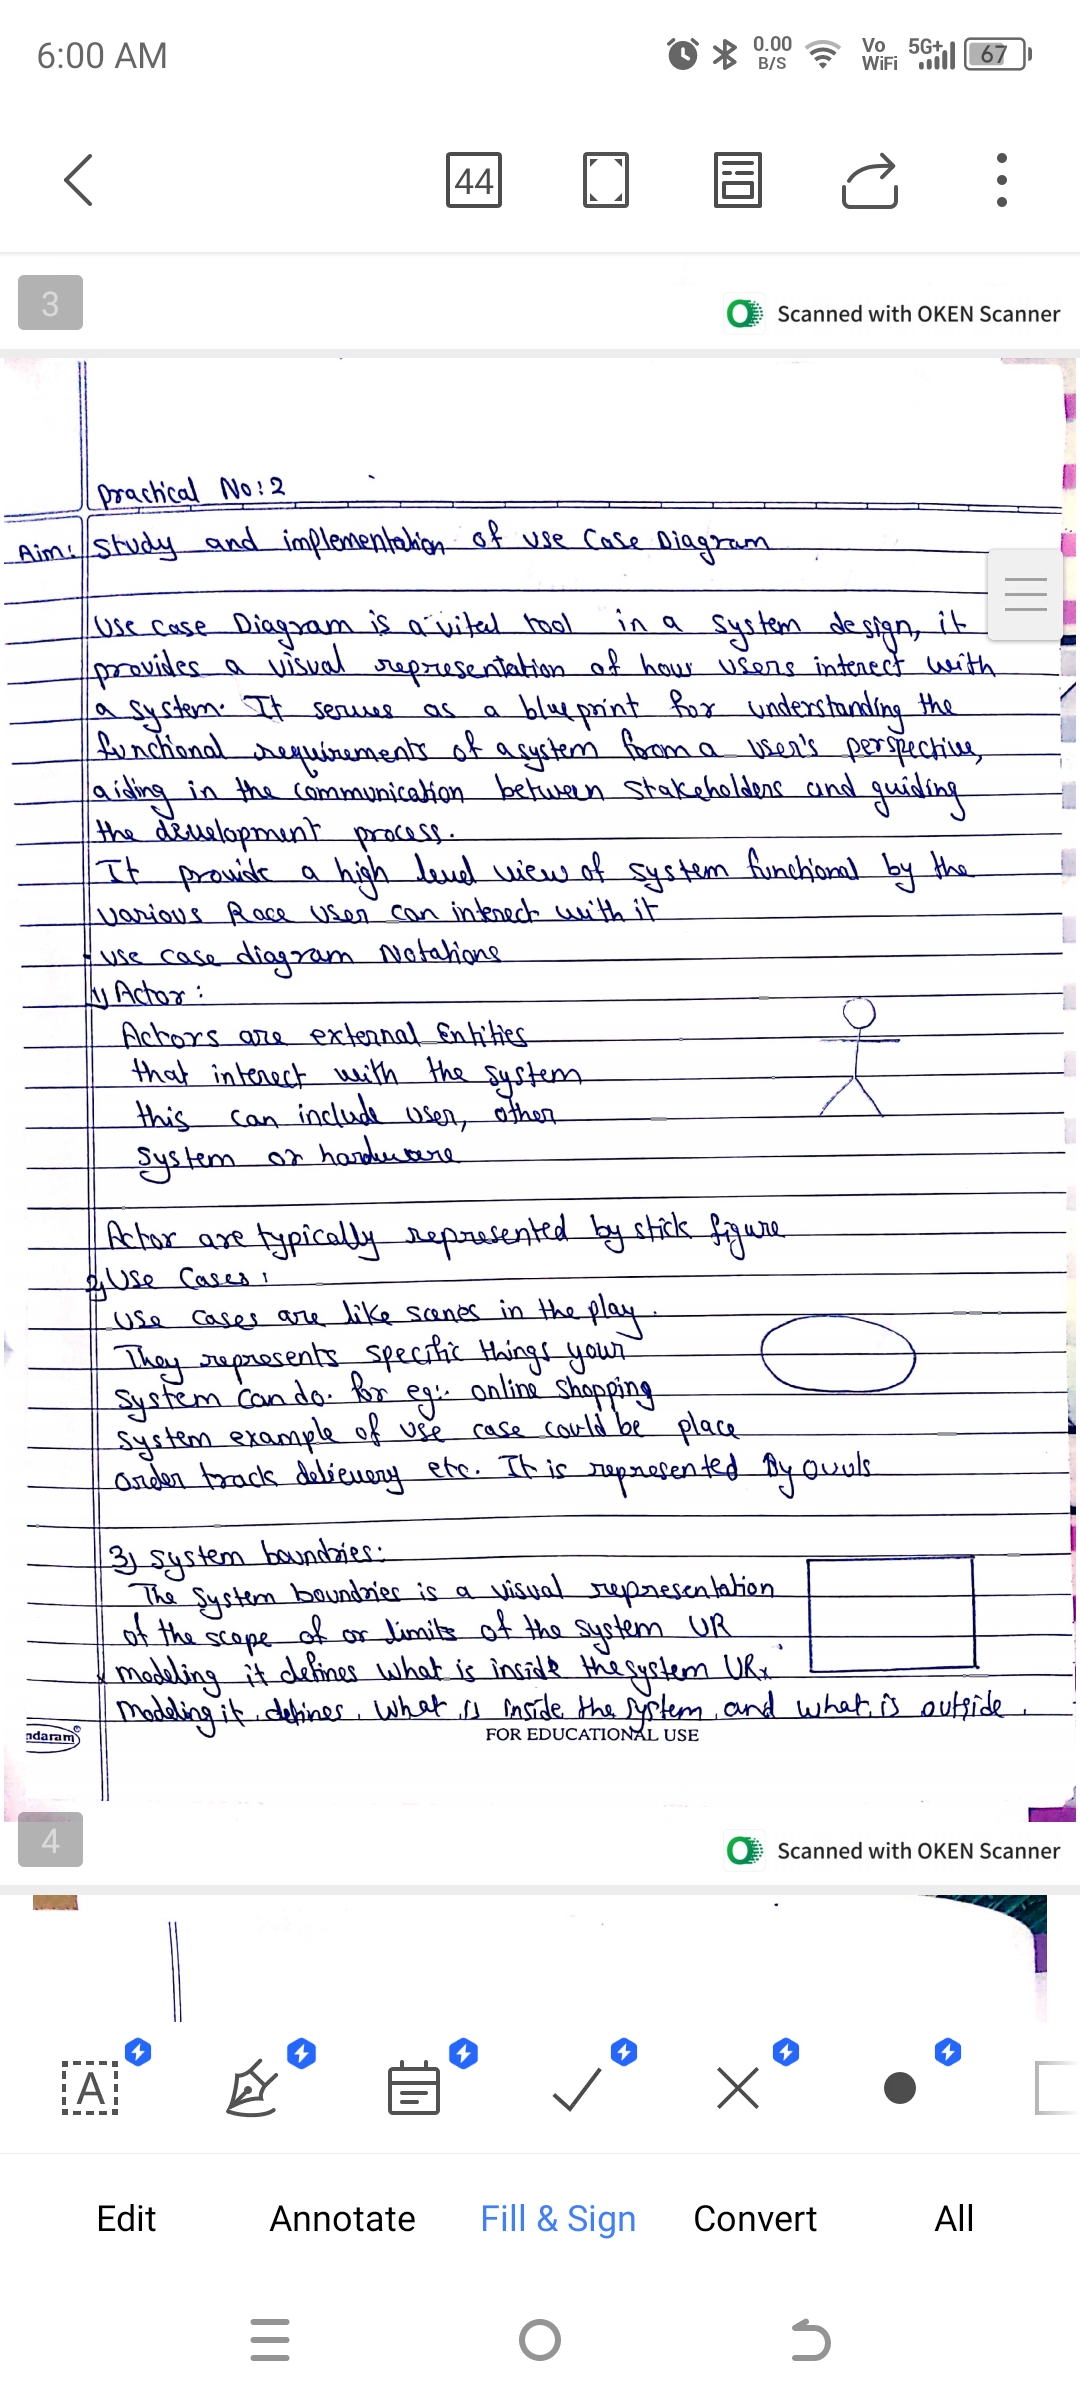 6:00 AM
0.00 B/S
Vo WiFi
5G+
67
44
3
Scanned with OKEN Scanner
Practical No: 2
Aim: Study and implementation of use Case Diagram
Use case Diagram is a vital tool in a system design, it
provides a visual representation of how users interect with
a system. It serves as a blueprint for understanding the
functional requirements of a system from a user's perspective,
aiding in the communication between stakeholders and guiding
the development process.
It provide a high level view of system functional by the
various Race user can interect with it
use case diagram Notations
1) Actor :
Actors are external Entities
that interect with the system
this can include user, other
system or hardware
Actor are typically represented by stick figure
2) Use Cases :
use cases are like scenes in the play.
They represents specific things your
system can do. for eg:. online shopping
system example of use case could be place
order track delievery etc. It is represented By ovals
3) System boundries:
The System boundries is a visual representation
of the scope of or limits of the system UR
modeling it defines what is inside the system URx
Modeling it defines what is inside the system and what is outside.
ndaram
FOR EDUCATIONAL USE
4
Scanned with OKEN Scanner
A
Edit
Annotate
Fill & Sign
Convert
All